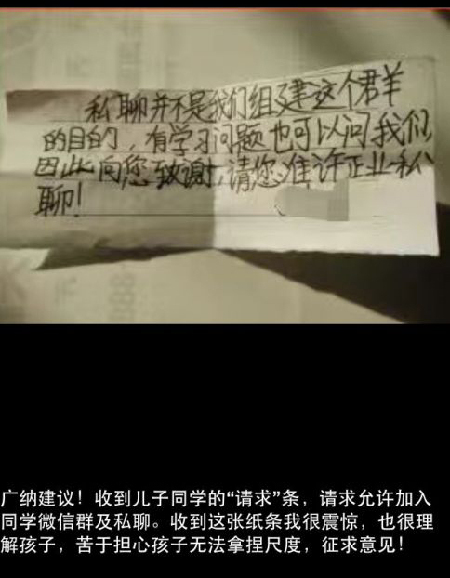 私聊并不是我们组建这个君羊
的目的，有学习问题也可以问我们，
因此向您致谢，请您准许正业私
聊！
广纳建议！收到儿子同学的“请求”条，请求允许加入
同学微信群及私聊。收到这张纸条我很震惊，也很理
解孩子，苦于担心孩子无法拿捏尺度，征求意见！